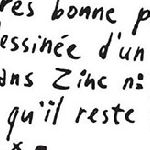 rès bonne p
essinée d'un
ans Zinc n:
qu'il reste